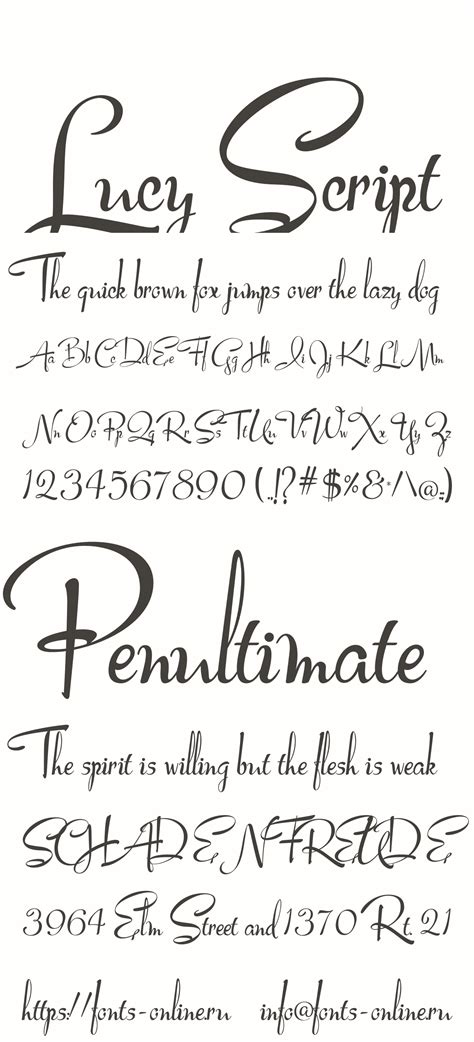 Lucy Script
The quick brown fox jumps over the lazy dog
Aa Bb Cc Dd Ee Ff Gg Hh Ii Jj Kk Ll Mm
Nn Oo Pp Qq Rr Ss Tt Uu Vv Ww Xx Yy Zz
1234567890 (.,!?#$%&*/\@:;)
Penultimate
The spirit is willing but the flesh is weak
SCHADENFREUDE
3964 Elm Street and 1370 Rt. 21
https://fonts-online.ru info@fonts-online.ru